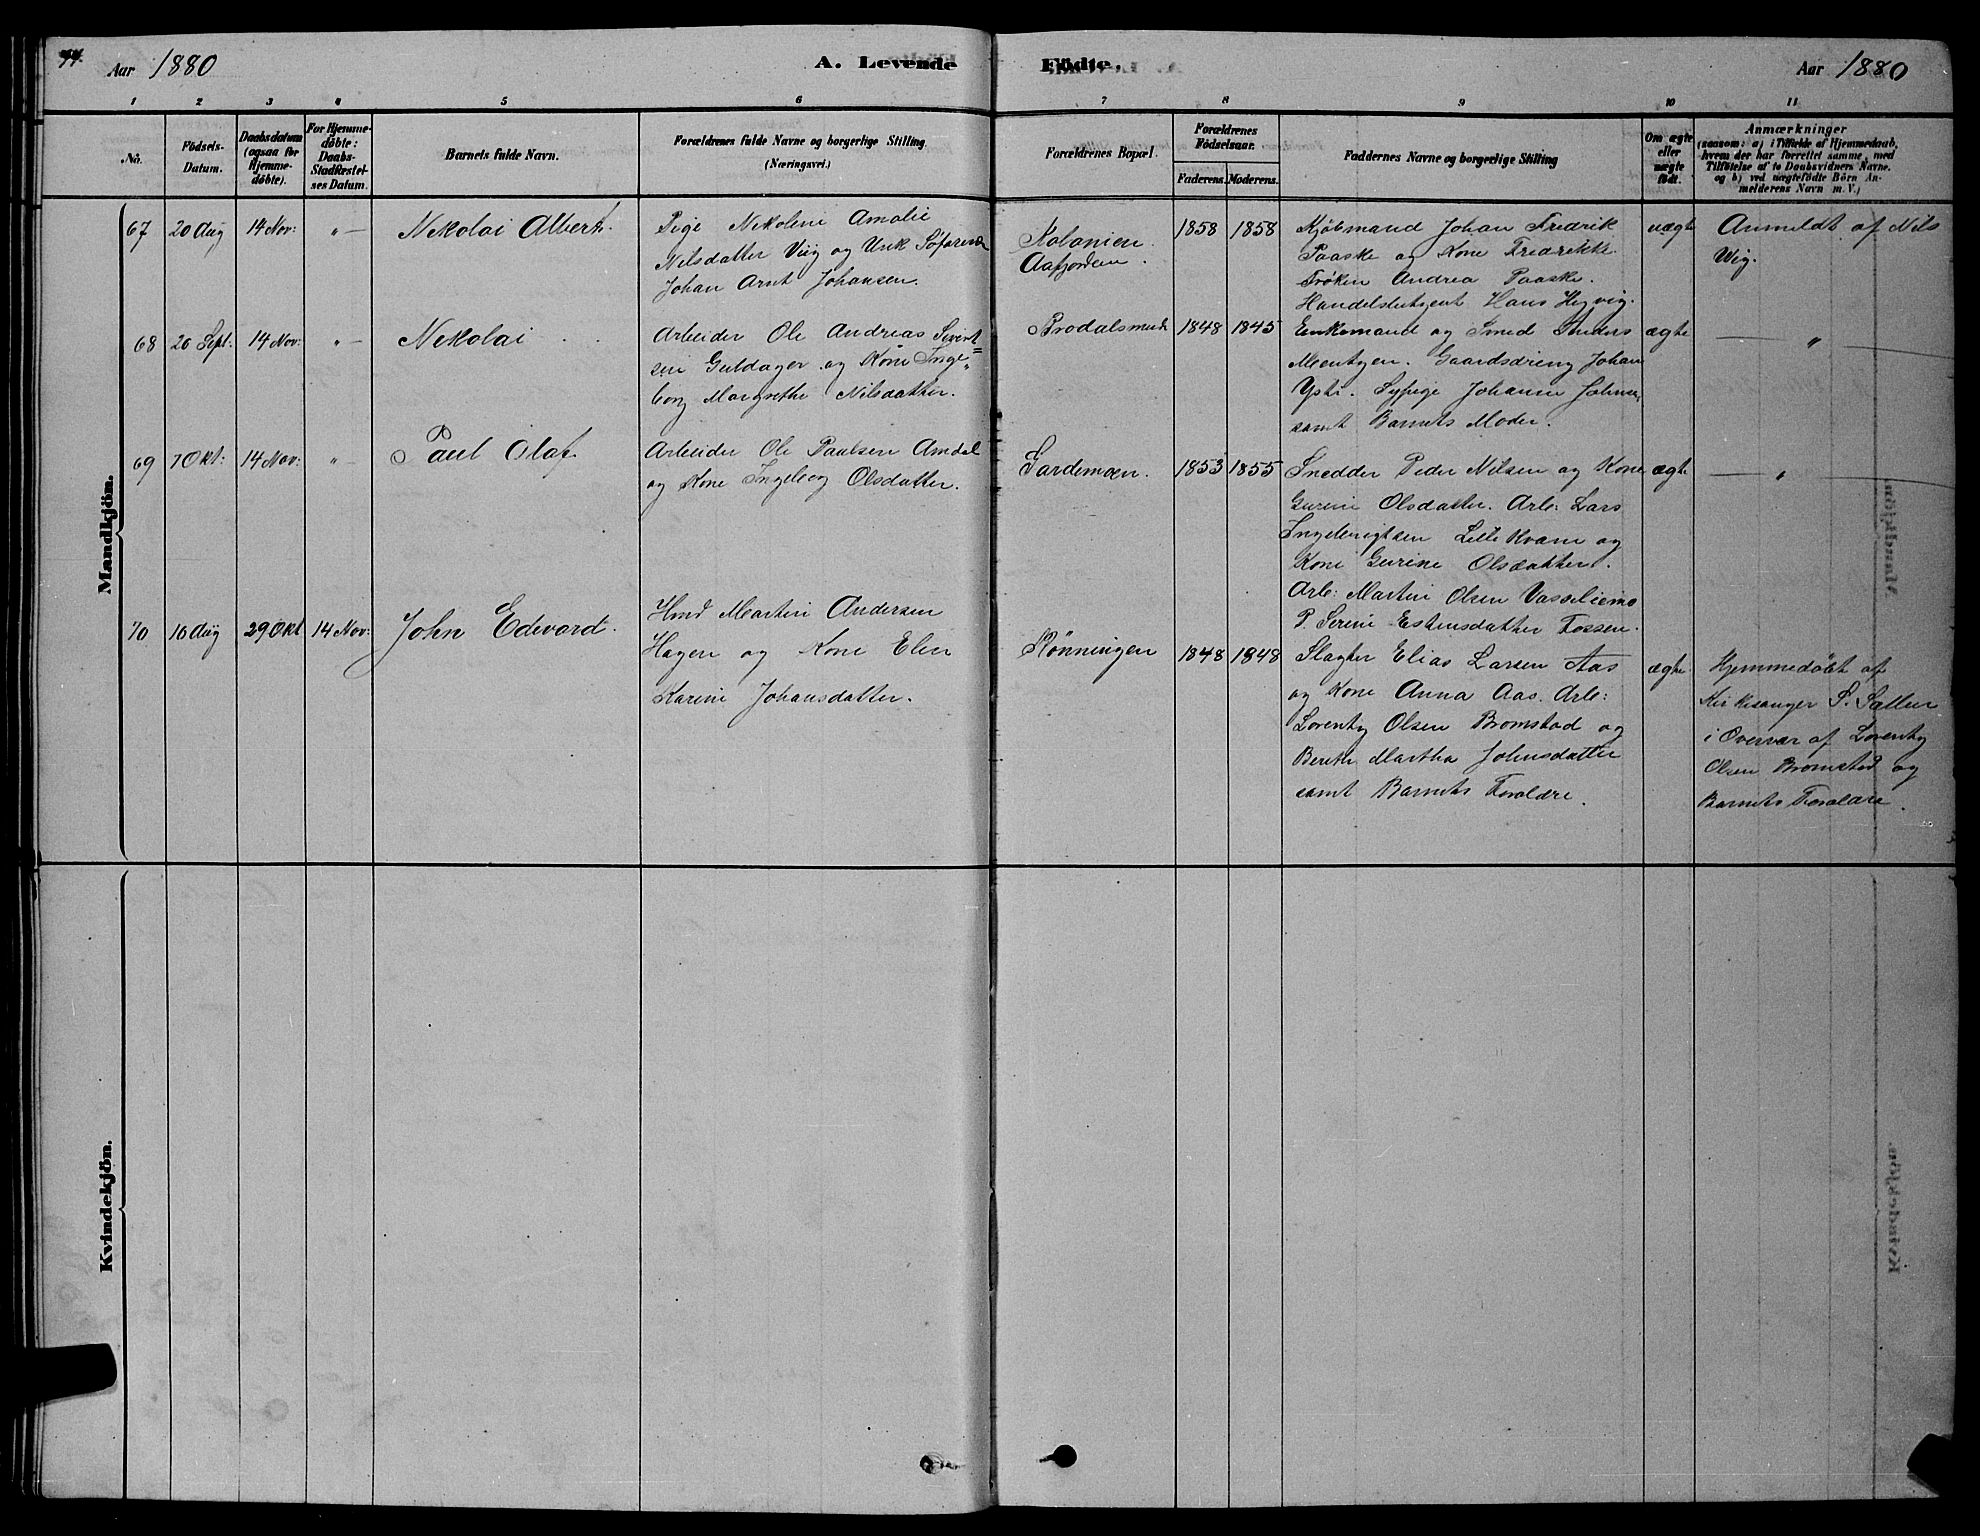 44.
Aar 1880
A. Levende Födte.
Aar 1880
1 2 3 4 5 6 7 8 9 10 11
No.
Födsels-
Datum.
Daabsdatum
(ogsaa for
Hjemme-
döbte).
For Hjemme-
döbte:
Daabs-
Stadfæstel-
ses Datum.
Barnets fulde Navn.
Forældrenes fulde Navne og borgerlige Stilling
(Næringsvei.)
Forældrenes Bopæl.
Forældrenes
Födselsaar.
Faderens. Moderens.
Faddernes Navne og borgerlige Stilling
Om ægte
eller
uægte
födt.
Anmærkninger
(saasom: a) i Tilfælde af Hjemmedaab,
hvem der har forrettet samme, med
Tilföielse af to Daabsvidners Navne.
og b) ved uægtefödte Börn An-
melderens Navn m. V.)
Mandkjön.
67 20 Aug 14 Nov: " — Nekolai Albert.
Pige Nekoline Amalie
Nilsdatter Viig og Unk Søfarende
Johan Arnt Johansen.
Kolonien.
Aafjorden.
1858 1858
Kjøbmand Johan Fredrik
Paaske og Kone Fredrikke.
Frøken Andrea Paaske.
Handelsbetjent Hans Hegvig.
uægte
Anmeldt af Nils
Wig.
68 20 Sept: 14 Nov: " — Nekolai
Arbeider Ole Andreas Sivert=
sen Guldager og Kone Inge
borg Margrethe Nilsdatter.
Brodalsmed 1848 1845
Enkemand og Smed Anders
Mentzen. Gaardsdreng Johan
Ystr. Sypige Johanna Johns.
samt Barnets Moder.
ægte — " —
69 7 Okt: 14 Nov: " — Paul Olaf
Arbeider Ole Paulsen Amdal
og Kone Ingeborg Olsdatter.
Gardemoen. 1853 1855
Snedder Peder Nilsen og Kone
Gurine Olsdatter. Arb: Lars
Ingebrigtsen Lille Kvam og
Kone Gurine Olsdatter.
Arb: Martin Olsen Vasseliemo
P. Serine Estensdatter Fossen.
ægte — " —
70 16 Aug 29 Okt 14 Nov: John Edvard.
Hmd Martin Andersen
Hagen og Kone Elen
Karine Johansdatter.
Rønningen 1848 1848
Slagter Elias Larsen Aas
og Kone Anna Aas. Arb:
Lorentz Olsen Bromstad og
Bereth Martha Johnsdatter
samt Barnets Forældre.
ægte
Hjemmedøbt af
Kirkesanger S. Sallin
i Overvær af Lorentz
Olsen Bromstad og
Barnets Forældre.
Kvindekjön.